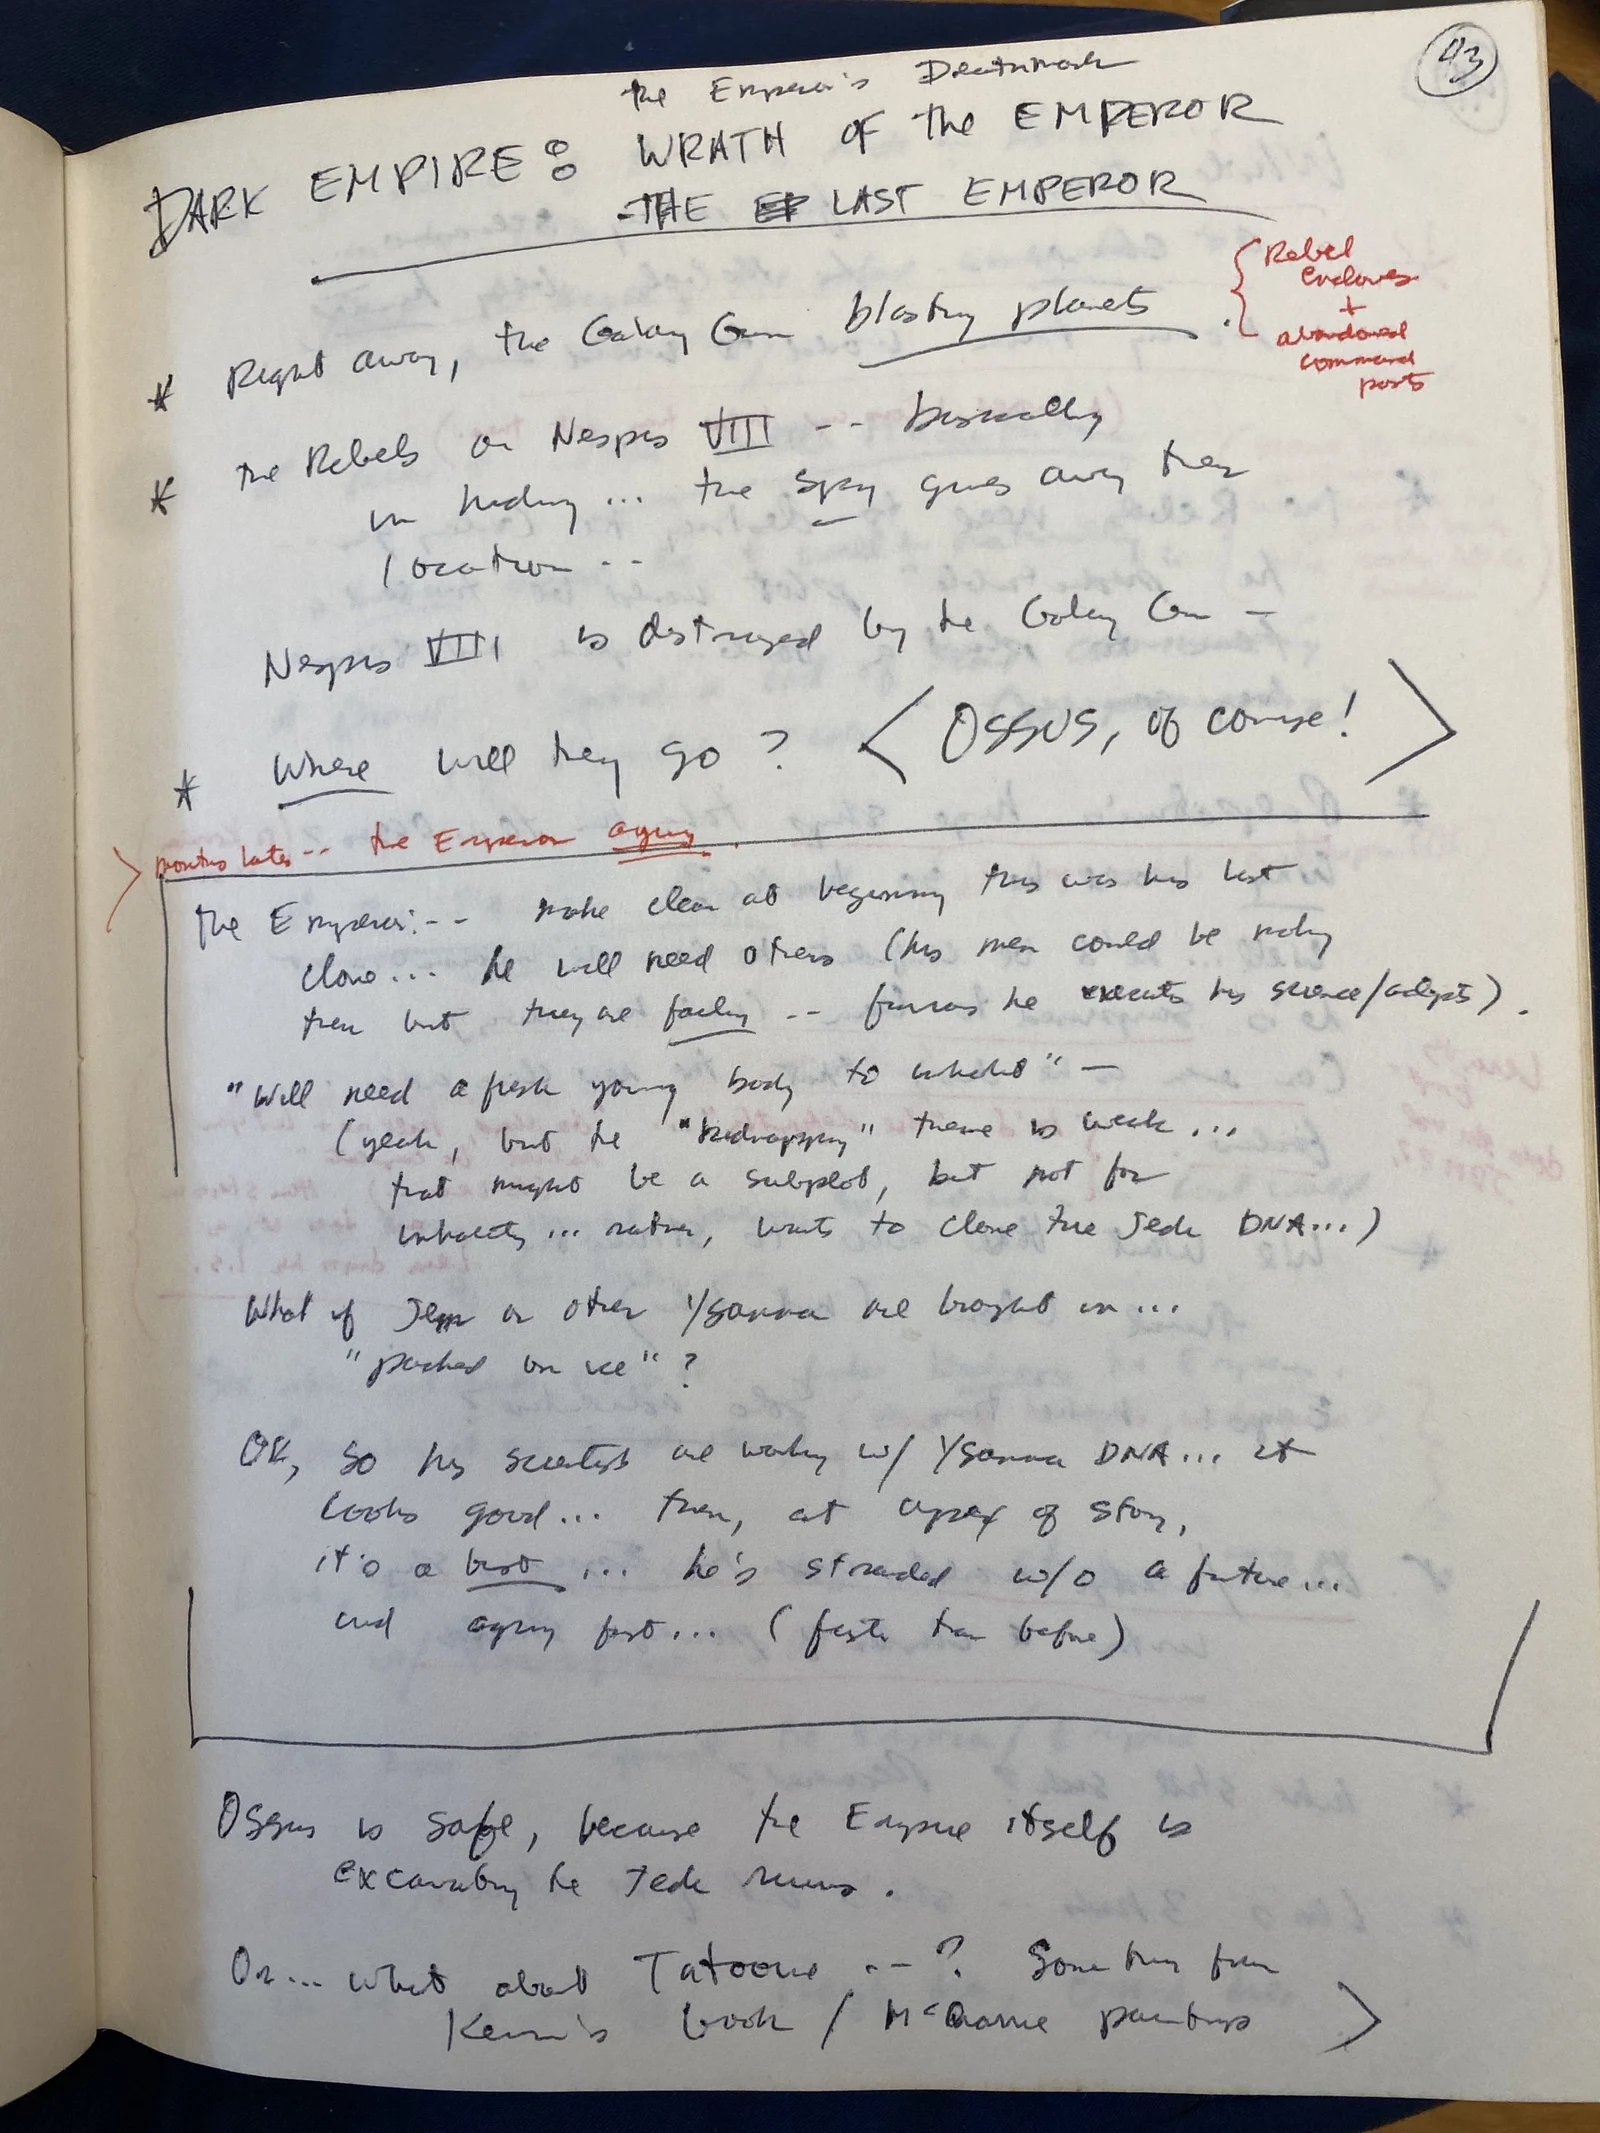 93
the Emperor's Deathmark
DARK EMPIRE: WRATH OF the EMPEROR
THE LAST EMPEROR
* Right away, the Galaxy Gun blasting planets.
{ Rebel
enclaves
+
abandoned
command
posts
* the Rebels on Nespis VIII -- basically
in hiding... the spy gives away their
location --
Nespis VIII is destroyed by the Galaxy Gun -
* Where will they go? < OSSUS, of course! >
> months later -- the Emperor aging.
the Emperor: -- make clear at beginning this was his last
clone... he will need others (his men could be making
them but they are failing -- furious he executes his science/adepts).
"Will need a fresh young body to inhabit" —
(yeah, but the "kidnapping" theme is weak...
that might be a subplot, but not for
inhabiting... rather, wants to clone the Jedi DNA...)
What if Jem or other Ysanna are brought in...
"packed in ice"?
OK, so his scientists are working w/ Ysanna DNA... it
looks good... then, at apex of story,
it's a bust... he's stranded w/o a future...
and aging fast... (faster than before)
Ossus is safe, because the Empire itself is
excavating the Jedi ruins.
Or... what about Tatooine --? Something from
Kevin's book / McQuarrie paintings >